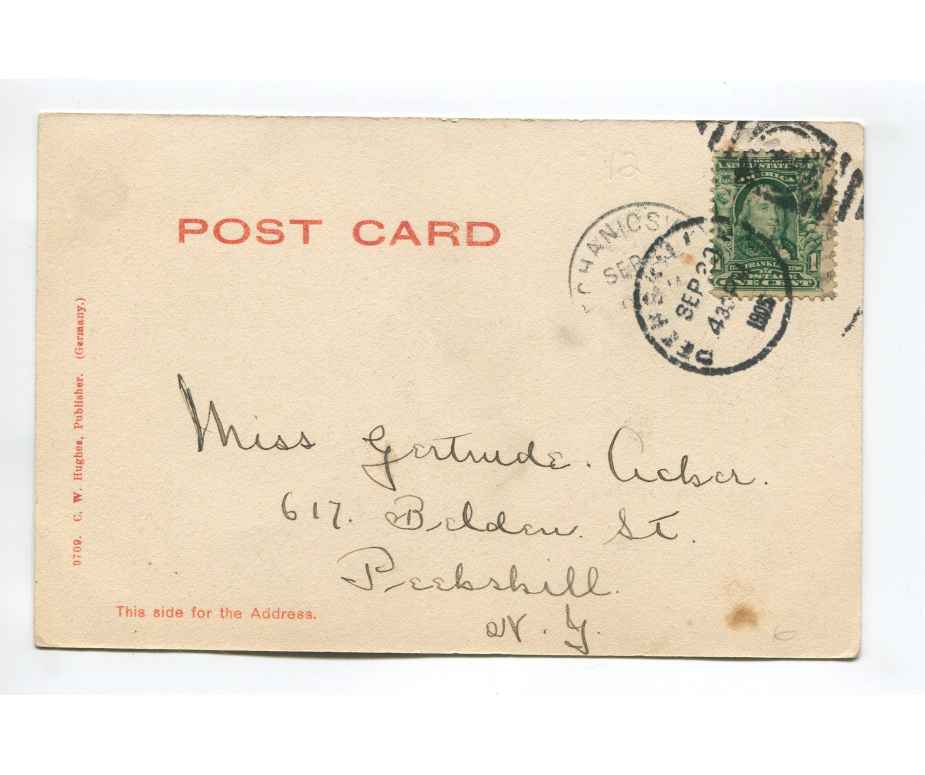 POST CARD
12
UNITED STATES OF
AMERICA
FRANKLIN
POSTAGE
ONE CENT
1
CHANICSV
SEP
PEEKSKILL
SEP 22
1905
Miss Gertrude Acker.
617. Belden St.
Peekskill.
N. Y.
This side for the Address.
9709. C. W. Hughes, Publisher. (Germany.)